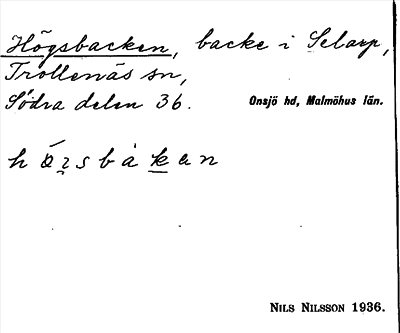 Högsbacken, backe i Selarp,
Trollenäs sn,
Södra delen 36. Onsjö hd, Malmöhus län.
NILS NILSSON 1936.